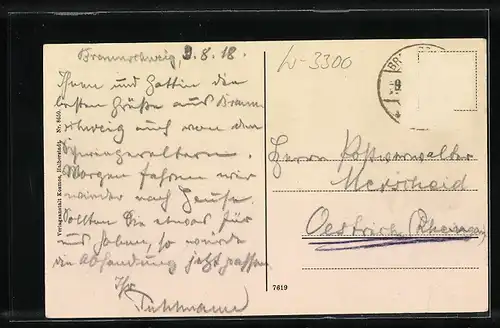 Braunschweig, 3.8.18.
Ihnen und Gattin die
besten Grüße aus Braun
schweig auch von den
Schwiegereltern.
Morgen fahren wir
wieder nach Hause.
Sollten Sie etwas für
uns haben, so würde
die Absendung jetzt passen.
Ihr
w-3300
BR
Herrn Postverwalter
Merscheid
Oestrich (Rheingau)
7619
Verlagsanstalt Kosmos, Halberstadt. Nr.